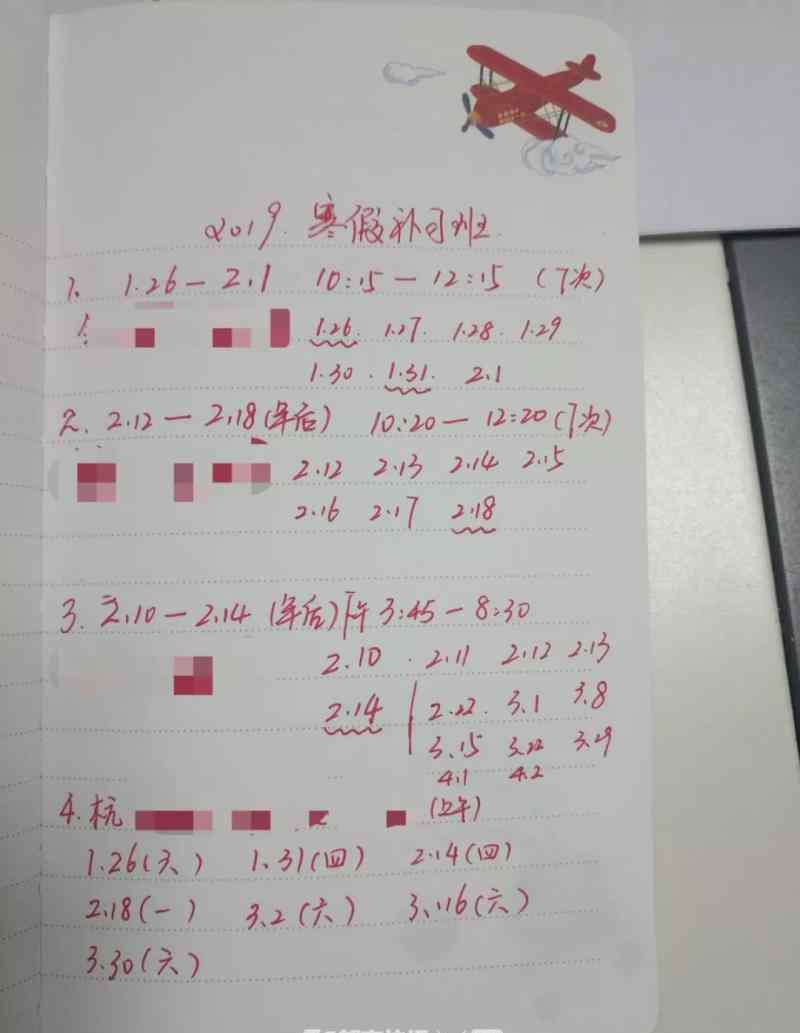 2019.寒假补习班
1. 1.26—2.1 10:15—12:15 (7次)
1.26. 1.27. 1.28. 1.29
1.30. 1.31. 2.1
2. 2.12—2.18(年后) 10:20—12:20(7次)
2.12 2.13 2.14 2.15
2.16 2.17 2.18
3. 2.10—2.14 (年后)下午3:45-8:30
2.10 . 2.11 2.12 2.13
2.14 2.22. 3.1 3.8
3.15 3.22 3.29
4.1 4.2
4.杭 (上午)
1.26(六) 1.31(四) 2.14(四)
2.18(一) 3.2(六) 3.16(六)
3.30(六)